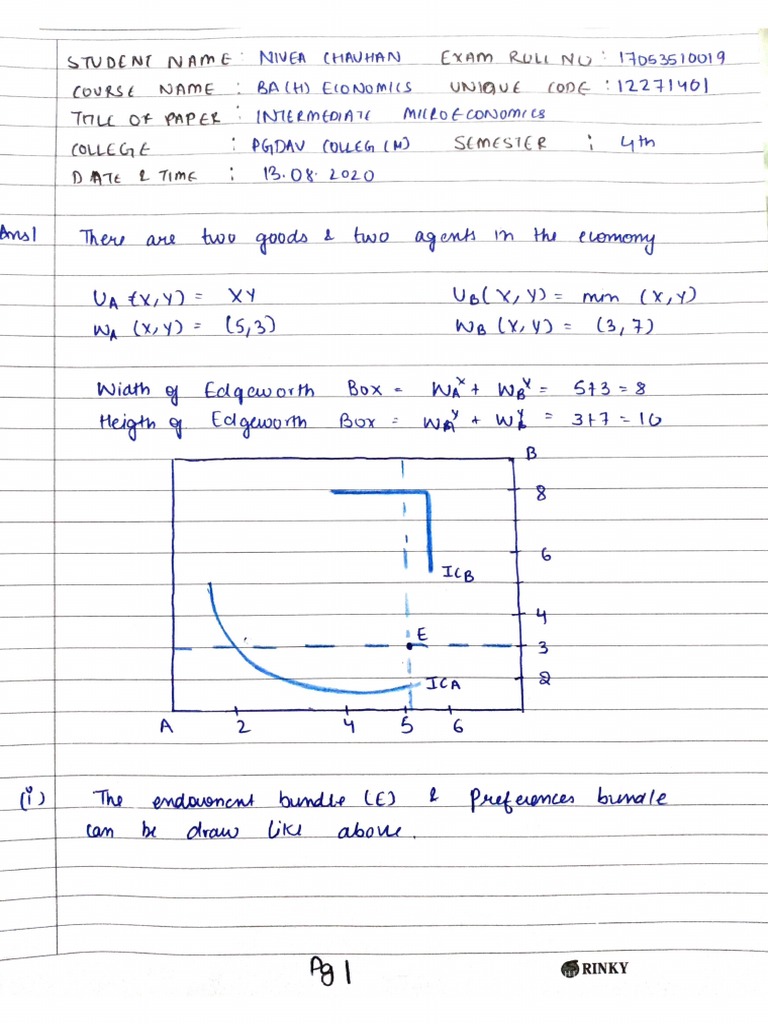 STUDENT NAME : NIVEA CHAUHAN EXAM ROLL NO : 17053510019
COURSE NAME : BA(H) ECONOMICS UNIQUE CODE : 12271401
TITLE OF PAPER : INTERMEDIATE MICROECONOMICS
COLLEGE : PGDAV COLLEG (M) SEMESTER : 4th
DATE & TIME : 13.08.2020
Ans1 There are two goods & two agents in the economy
UA (X,Y) = XY UB (X,Y) = min (X,Y)
WA (X,Y) = (5,3) WB (X,Y) = (3,7)
Width of Edgeworth Box = WA^X + WB^X = 5+3 = 8
Heigth of Edgeworth Box = WA^Y + WB^Y = 3+7 = 10
B
8
6
ICB
4
E
3
ICA
2
A 2 4 5 6
(i) The endowment bundle (E) & Preferences bundle
can be draw like above.
Pg 1
RINKY